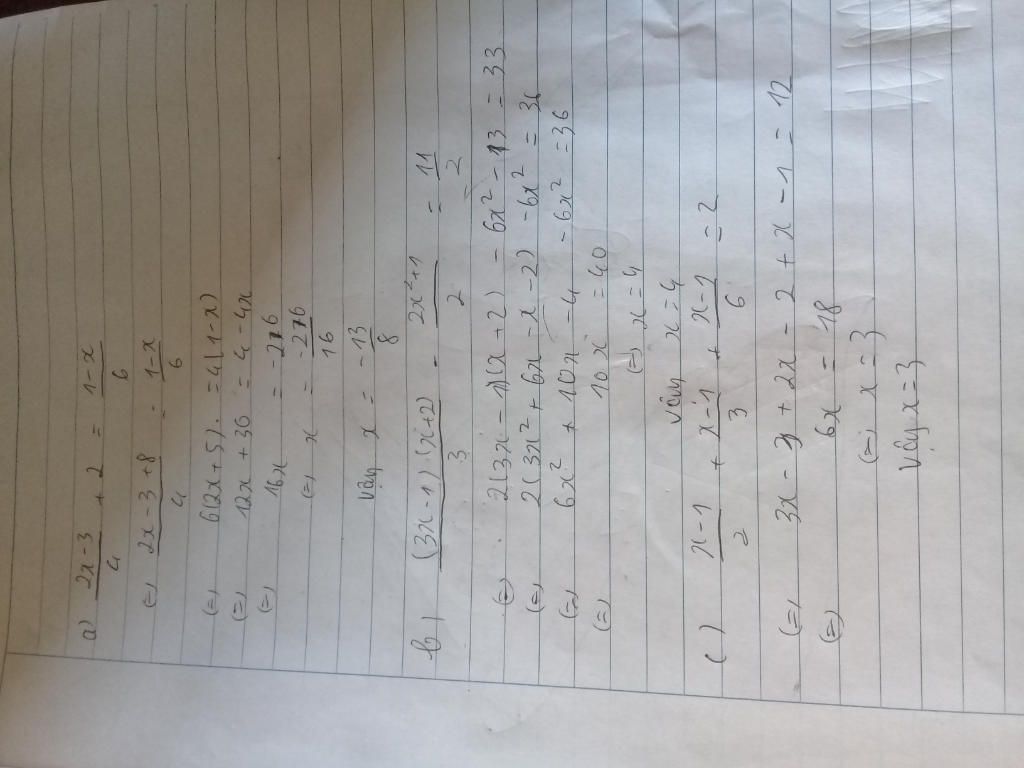 a) (2x-3)/4 + 2 = (1-x)/6
(=) (2x-3+8)/4 = (1-x)/6
(=) 6(2x+5) = 4(1-x)
(=) 12x + 30 = 4 - 4x
(=) 16x = -26
(=) x = -26/16
Vậy x = -13/8
b) (3x-1)(x+2)/3 - (2x²+1)/2 = 11/2
(=) 2(3x-1)(x+2) - 6x² - 3 = 33
(=) 2(3x² + 6x - x - 2) - 6x² = 36
(=) 6x² + 10x - 4 - 6x² = 36
(=) 10x = 40
(=) x = 4
Vậy x = 4
c) (x-1)/2 + (x-1)/3 + (x-1)/6 = 2
(=) 3x - 3 + 2x - 2 + x - 1 = 12
(=) 6x = 18
(=) x = 3
Vậy x = 3